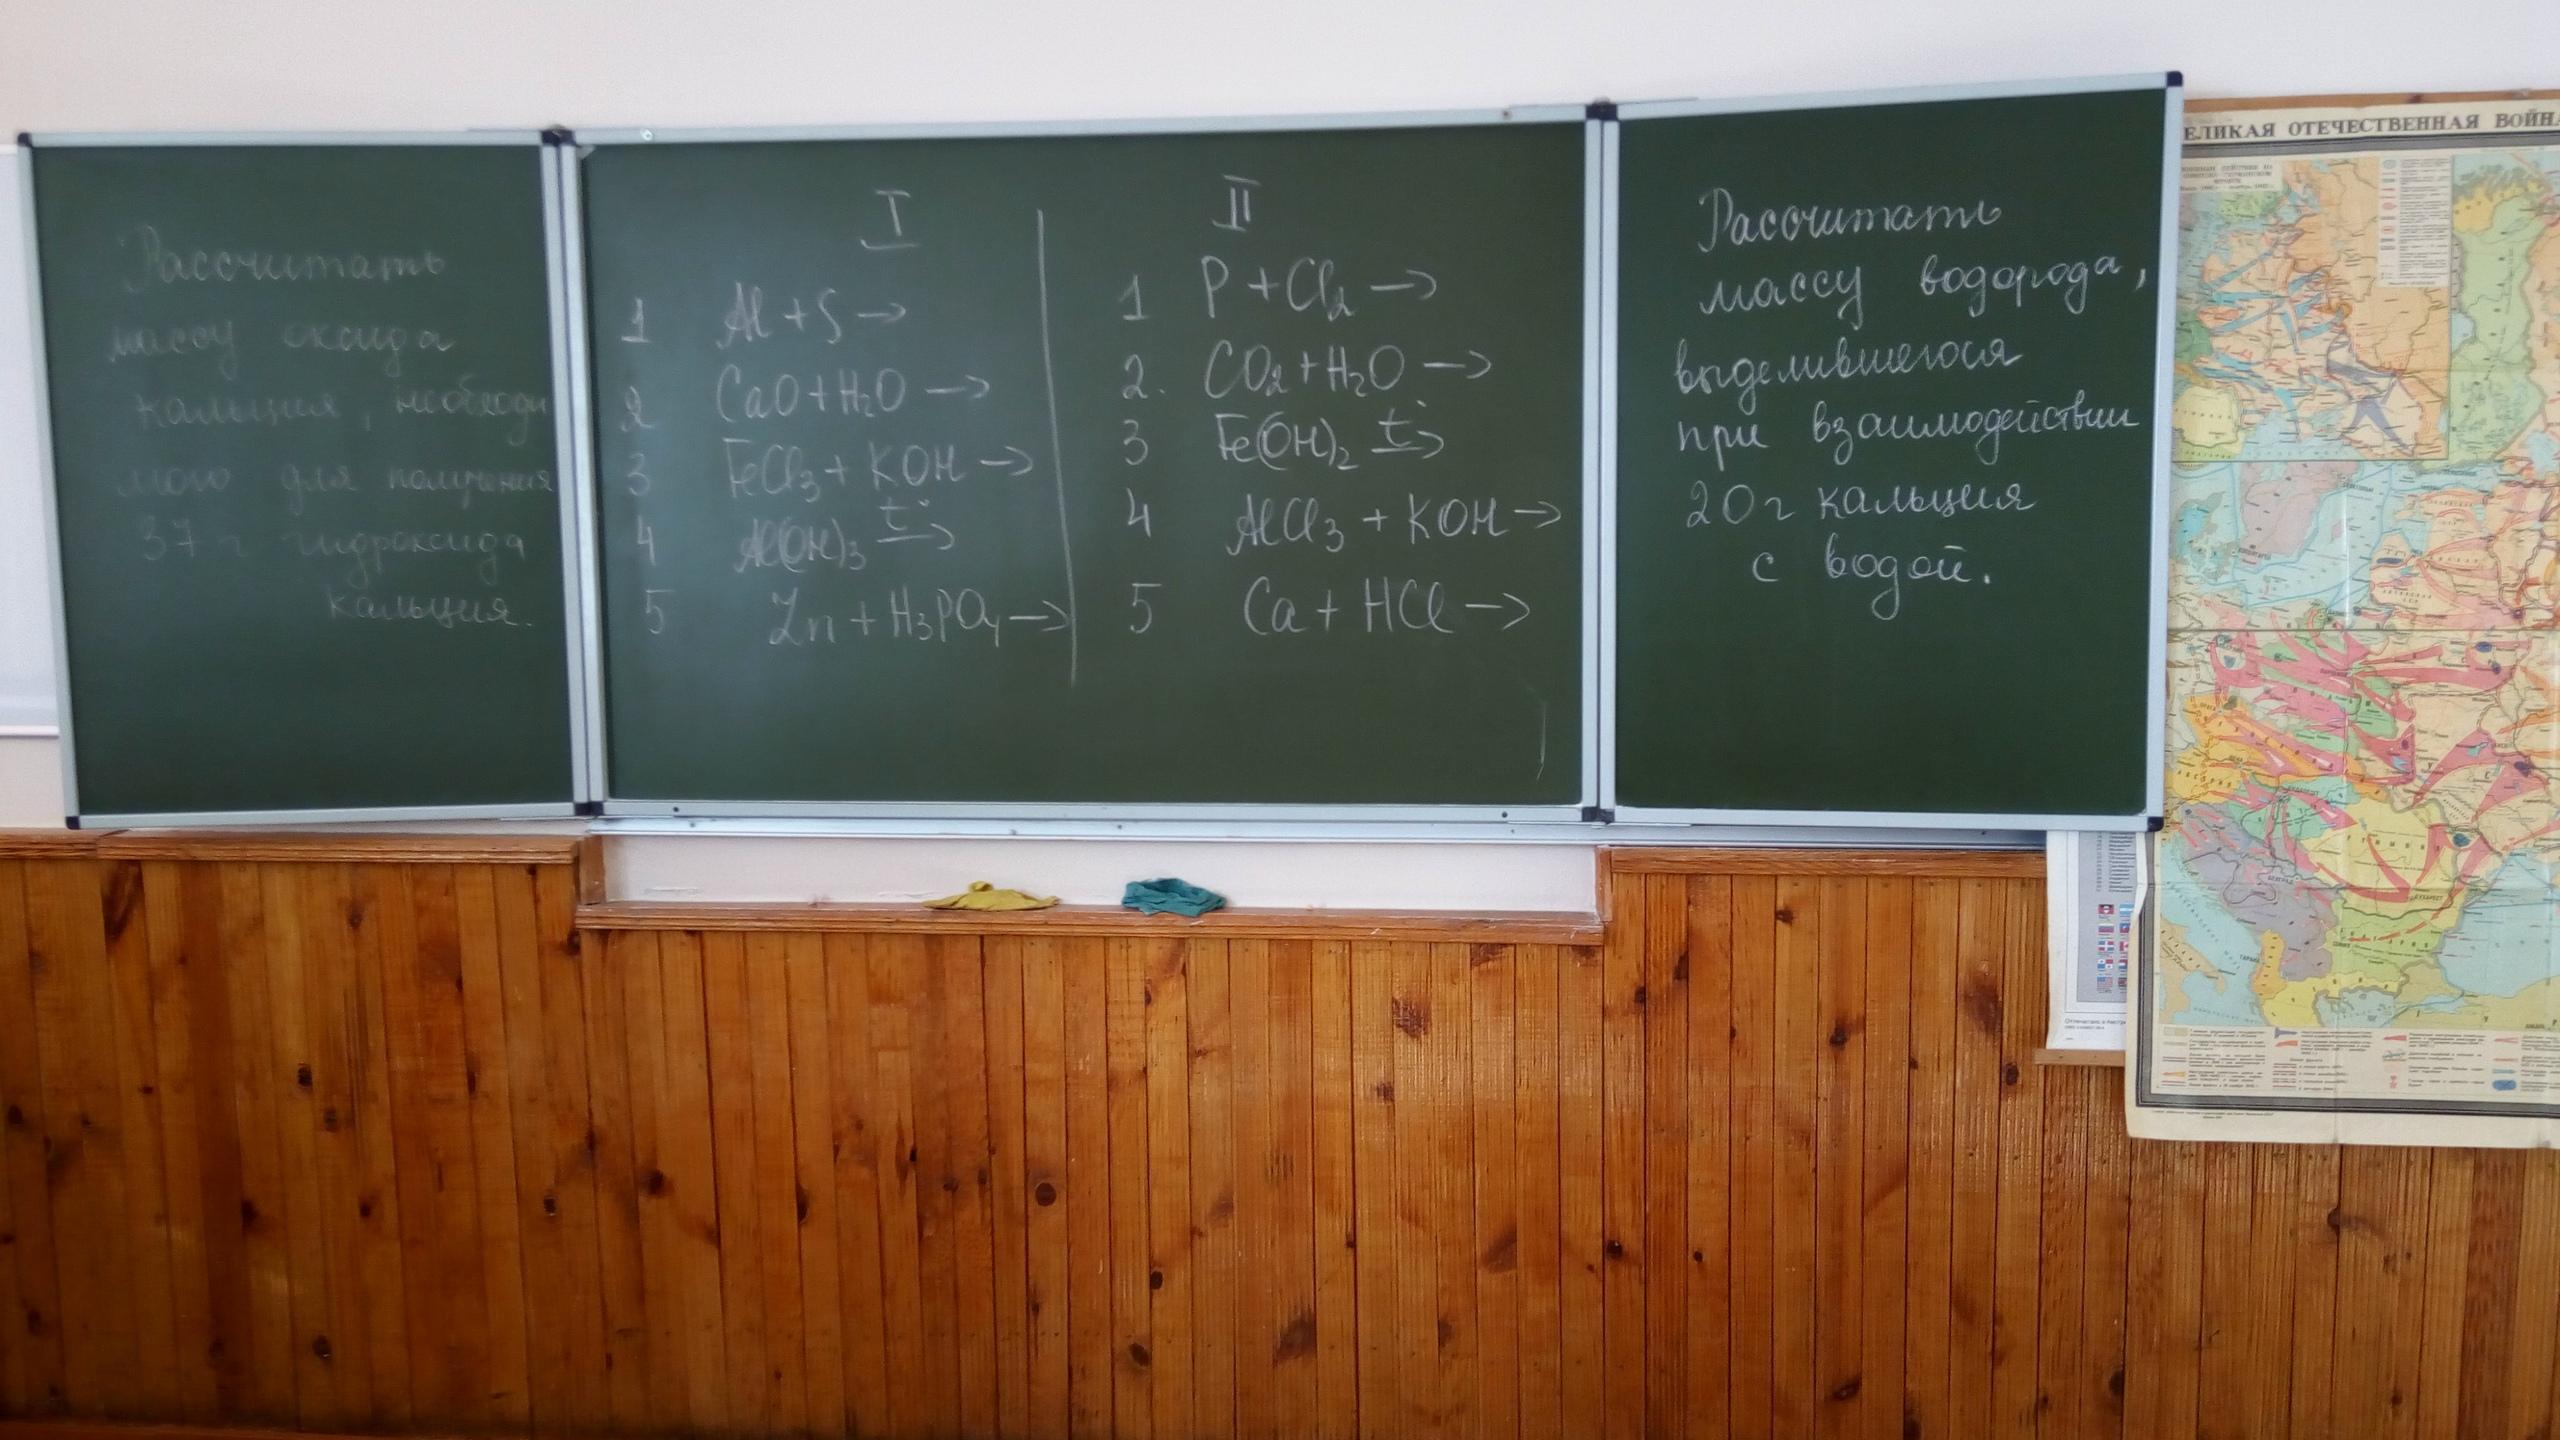 Рассчитать
массу оксида
кальция, необходи
мого для получения
37 г гидроксида
кальция.
I
1 Al + S →
2 CaO + H₂O →
3 FeCl₃ + KOH →
4 Al(OH)₃ t° →
5 Zn + H₃PO₄ →
II
1 P + Cl₂ →
2. CO₂ + H₂O →
3 Fe(OH)₂ t° →
4 AlCl₃ + KOH →
5 Ca + HCl →
Расчитать
массу водорода,
выделившегося
при взаимодействии
20 г кальция
с водой.
ЕЛИКАЯ ОТЕЧЕСТВЕННАЯ ВОЙНА